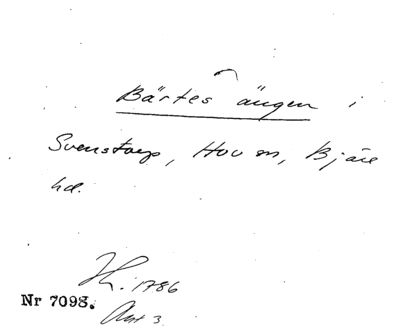 Bärtes ängen i
Svenstorp, Hov sn, Bjäre
hd.
H. 1786
Nr 7098.
Akt 3